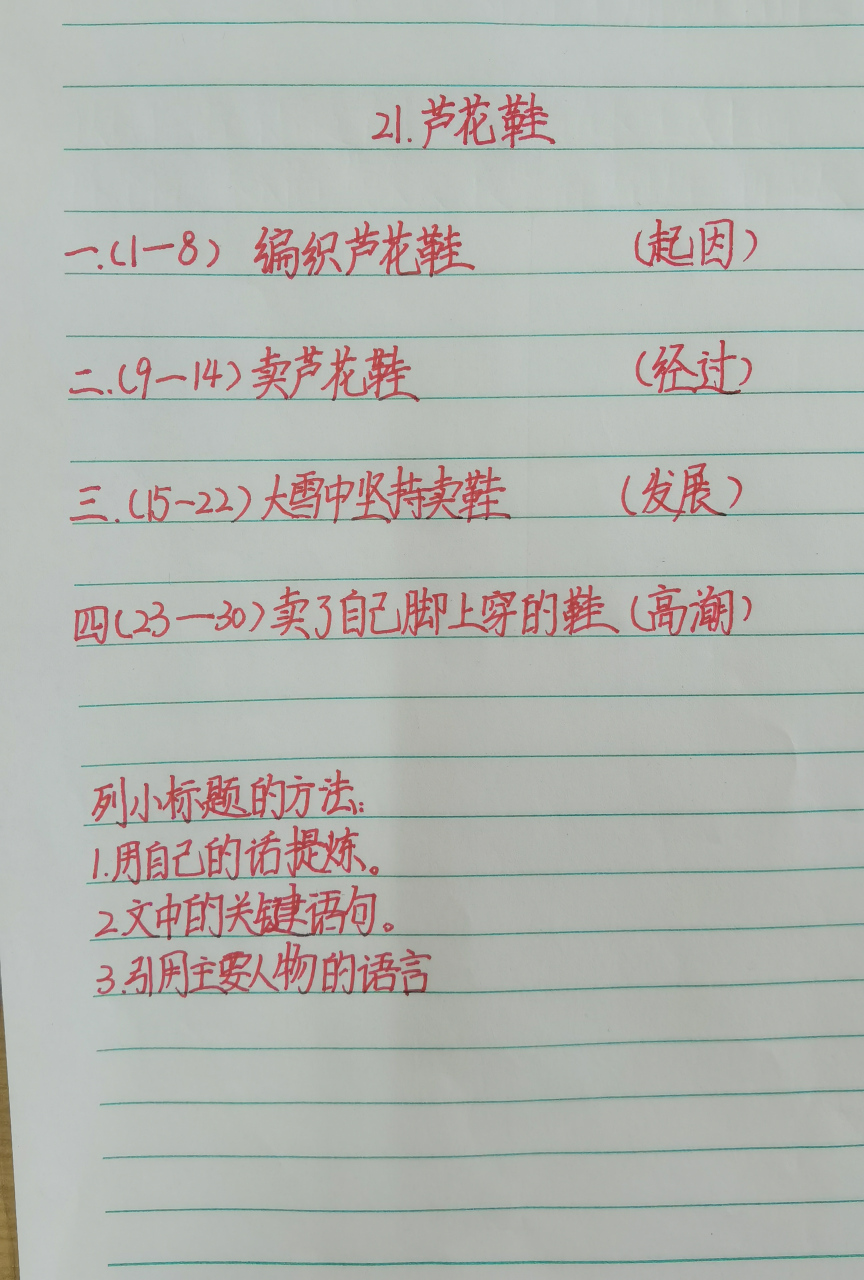 21.芦花鞋
一.(1一8) 编织芦花鞋 (起因)
二.(9一14)卖芦花鞋 (经过)
三.(15-22)大雪中坚持卖鞋 (发展)
四(23一30)卖了自己脚上穿的鞋(高潮)
列小标题的方法:
1.用自己的话提炼。
2.文中的关键语句。
3.引用主要人物的语言